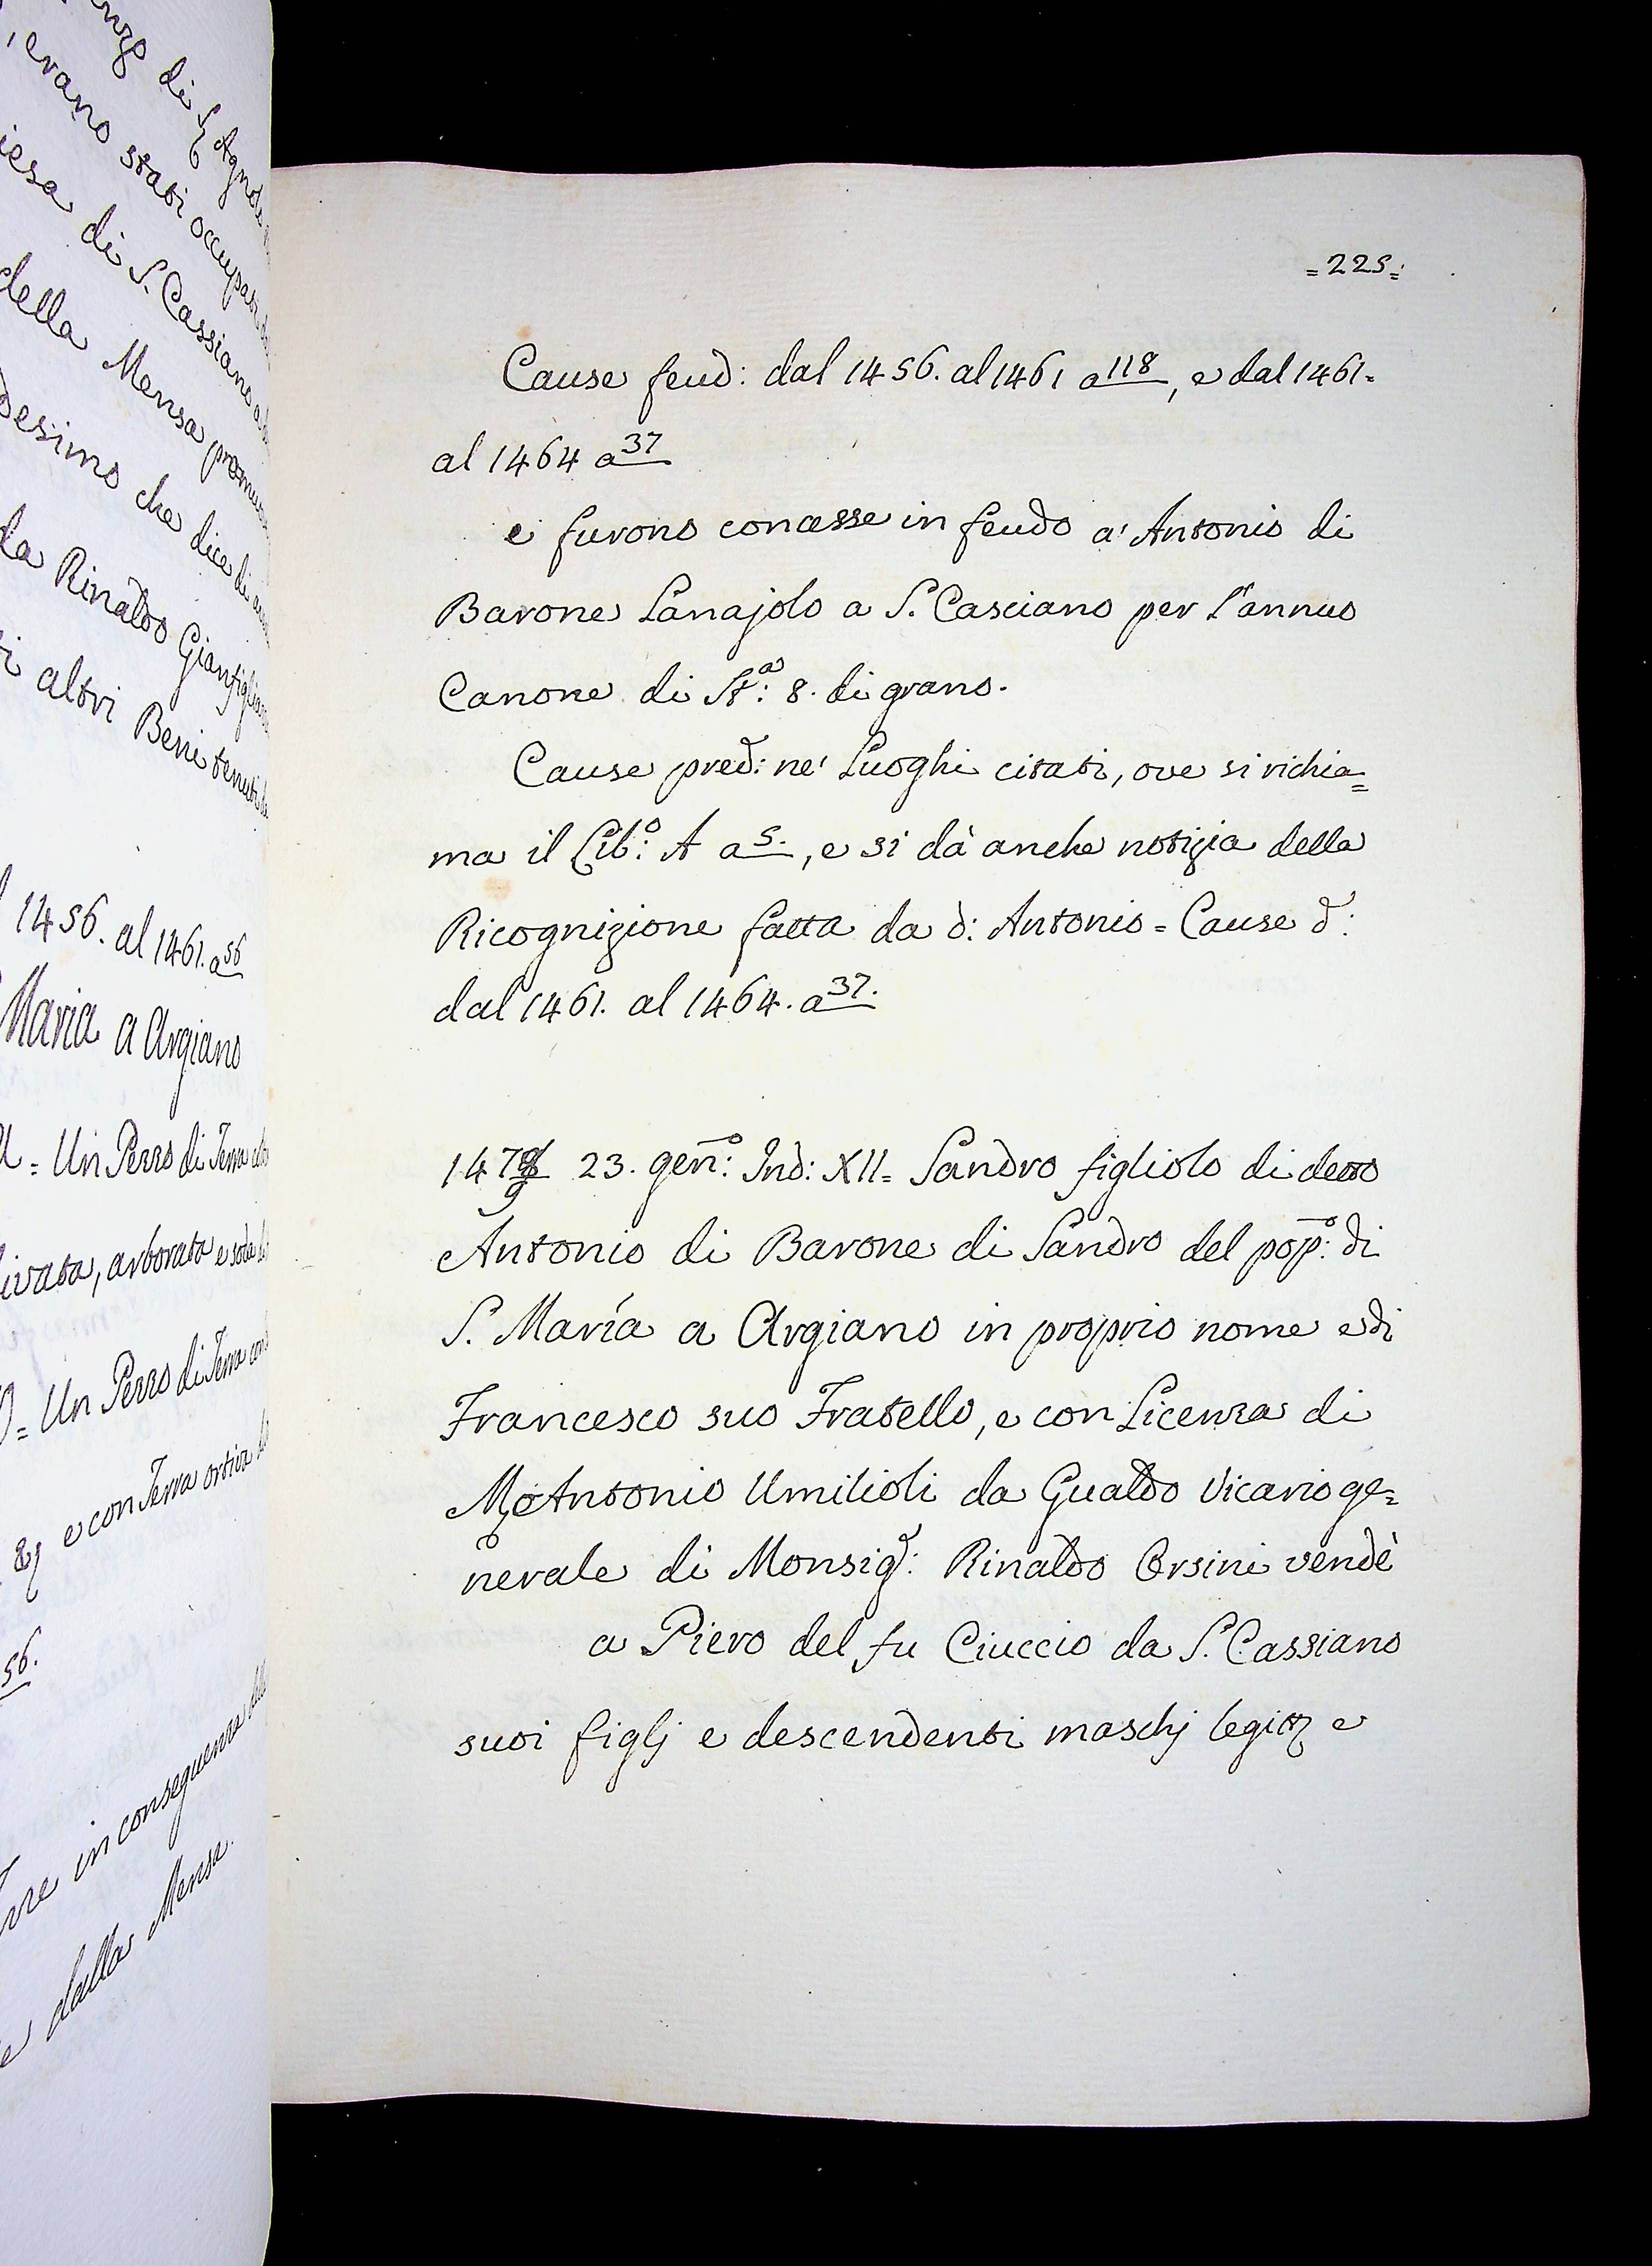 nze di S. Agnol
, erano stati occupati
iesa di S. Cassiano a
della Mensa
desimo che dice di
da Rinaldo Gianfigliazzi
ti altri Beni tenuti
1456. al 1461. a 56
Maria a Argiano
= Un Pezzo di Terra
ivata, arborata e soda
= Un Pezzo di Terra con
e con Terra ortiva
56.
in conseguenza della
e dalla Mensa.
= 225 =
Cause feud: dal 1456. al 1461 a 118, e dal 1461 =
al 1464 a 37
e furono concesse in feudo a' Antonio di
Barone Lanajolo a S. Casciano per l'annuo
Canone di St:ª 8. di grano.
Cause pred: ne' Luoghi citati, ove si richia=
ma il Lib:º A a 5., e si dà anche notizia della
Ricognizione fatta da d: Antonio = Cause d:
dal 1461. al 1464. a 37.
1478/9 23. gen:º Ind: XII = Sandro figliolo di detto
Antonio di Barone di Sandro del pop:º di
S. María a Argiano in proprio nome e di
Francesco suo Fratello, e con Licenza di
M. Antonio Umilioli da Gualdo Vicario ge=
nerale di Monsig: Rinaldo Orsini vendè
a Piero del fu Ciuccio da S. Cassiano
suoi figlj e descendenti maschj legitt e